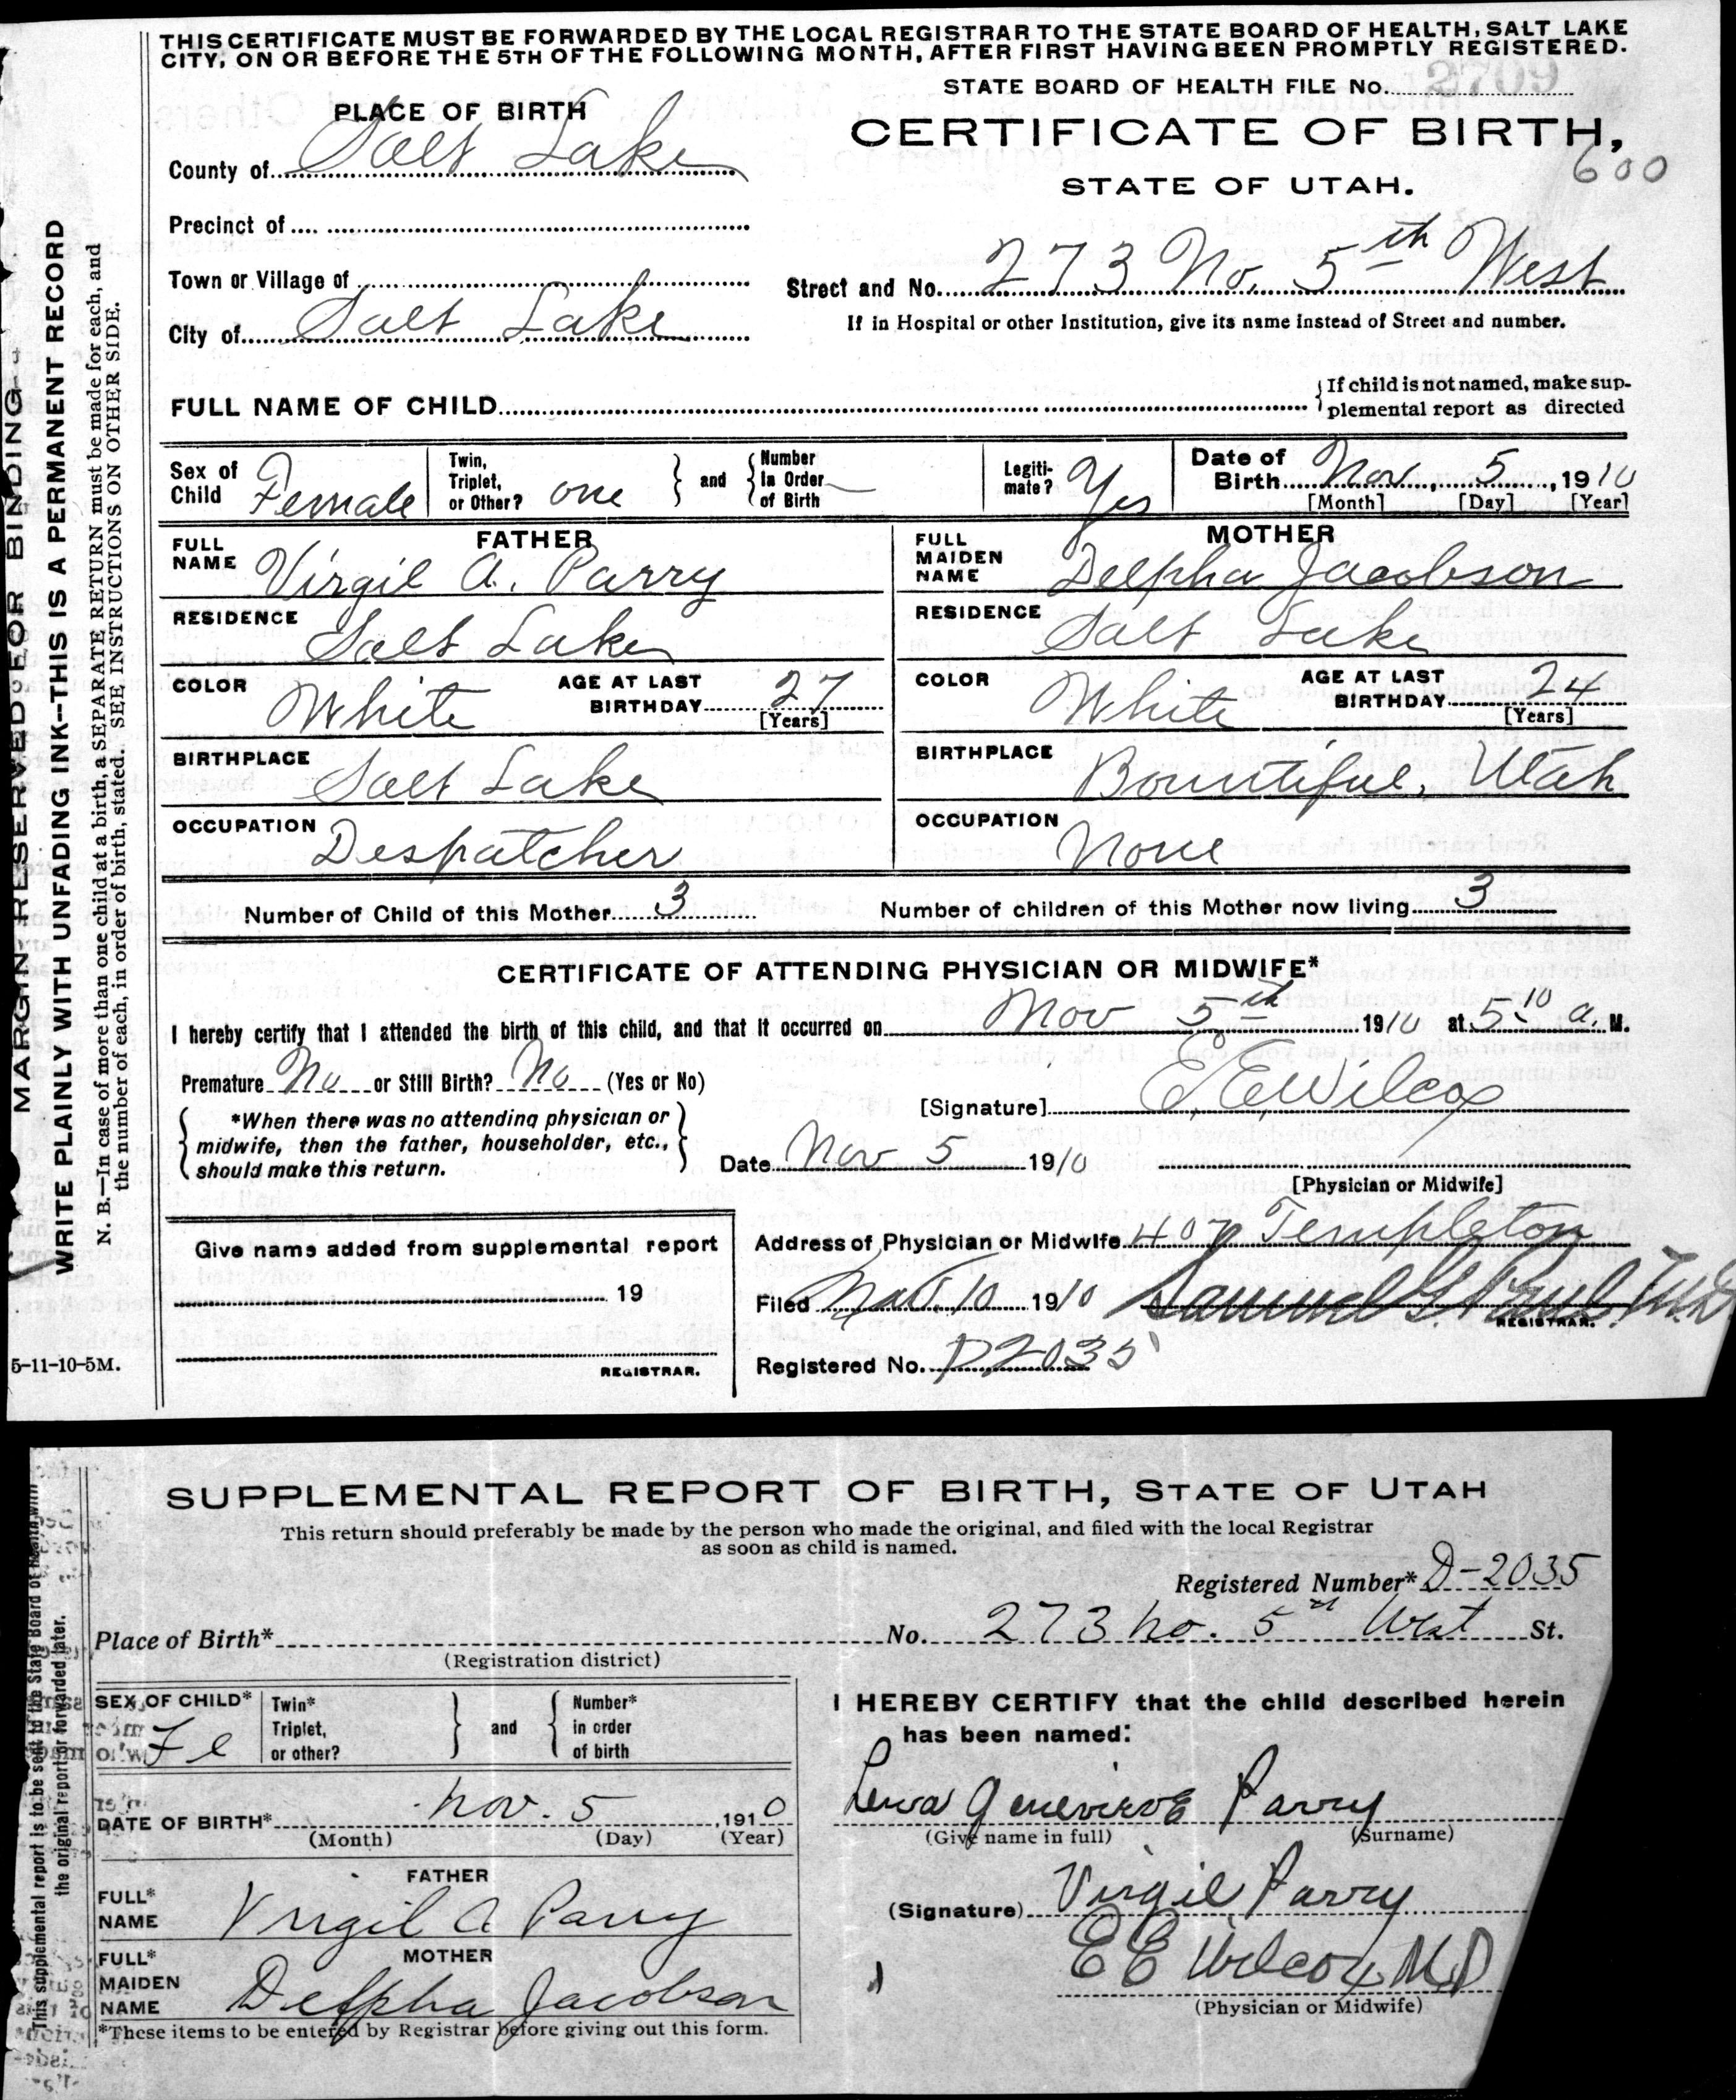 THIS CERTIFICATE MUST BE FORWARDED BY THE LOCAL REGISTRAR TO THE STATE BOARD OF HEALTH, SALT LAKE
CITY, ON OR BEFORE THE 5TH OF THE FOLLOWING MONTH, AFTER FIRST HAVING BEEN PROMPTLY REGISTERED.
STATE BOARD OF HEALTH FILE No. 2709
PLACE OF BIRTH
CERTIFICATE OF BIRTH,
600
County of Salt Lake
STATE OF UTAH.
Precinct of
Town or Village of
Street and No. 273 No. 5th West
City of Salt Lake
If in Hospital or other Institution, give its name instead of Street and number.
FULL NAME OF CHILD
{If child is not named, make sup-
plemental report as directed
Sex of Child Female
Twin, Triplet, or Other? one } and { Number In Order of Birth —
Legiti-mate? Yes
Date of Birth Nov, 5, 1910
[Month] [Day] [Year]
FATHER
FULL NAME Virgil A. Parry
MOTHER
FULL MAIDEN NAME Delpha Jacobson
RESIDENCE Salt Lake
RESIDENCE Salt Lake
COLOR White AGE AT LAST BIRTHDAY 27 [Years]
COLOR White AGE AT LAST BIRTHDAY 24 [Years]
BIRTHPLACE Salt Lake
BIRTHPLACE Bountiful, Utah
OCCUPATION Despatcher
OCCUPATION None
Number of Child of this Mother 3 Number of children of this Mother now living 3
CERTIFICATE OF ATTENDING PHYSICIAN OR MIDWIFE*
I hereby certify that I attended the birth of this child, and that it occurred on Nov 5th 1910 at 5:10 a. M.
Premature No or Still Birth? No (Yes or No)
[Signature] E. E. Wilcox
{ *When there was no attending physician or
midwife, then the father, householder, etc.,
should make this return. }
Date Nov 5 1910
[Physician or Midwife]
Address of Physician or Midwife 407 Templeton
Give name added from supplemental report
19
REGISTRAR.
Filed Nov. 10 1910 Samuel G. Paul M.D.
REGISTRAR.
Registered No. D2035
5-11-10-5M.
MARGIN RESERVED FOR BINDING
WRITE PLAINLY WITH UNFADING INK--THIS IS A PERMANENT RECORD
N. B.—In case of more than one child at a birth, a SEPARATE RETURN must be made for each, and
the number of each, in order of birth, stated. SEE INSTRUCTIONS ON OTHER SIDE.
SUPPLEMENTAL REPORT OF BIRTH, STATE OF UTAH
This return should preferably be made by the person who made the original, and filed with the local Registrar
as soon as child is named.
Registered Number* D-2035
Place of Birth* No. 273 no. 5th West St.
(Registration district)
SEX OF CHILD* Fe
Twin* Triplet, or other? } and { Number* in order of birth
I HEREBY CERTIFY that the child described herein
has been named:
Genevieve Parry
(Give name in full) (Surname)
DATE OF BIRTH* Nov. 5, 1910
(Month) (Day) (Year)
FATHER
FULL* NAME Virgil A Parry
(Signature) Virgil Parry
E E Wilcox M.D
(Physician or Midwife)
MOTHER
FULL* MAIDEN NAME Delpha Jacobson
*These items to be entered by Registrar before giving out this form.
This supplemental report is to be sent to the State Board of Health with
the original report or forwarded later.